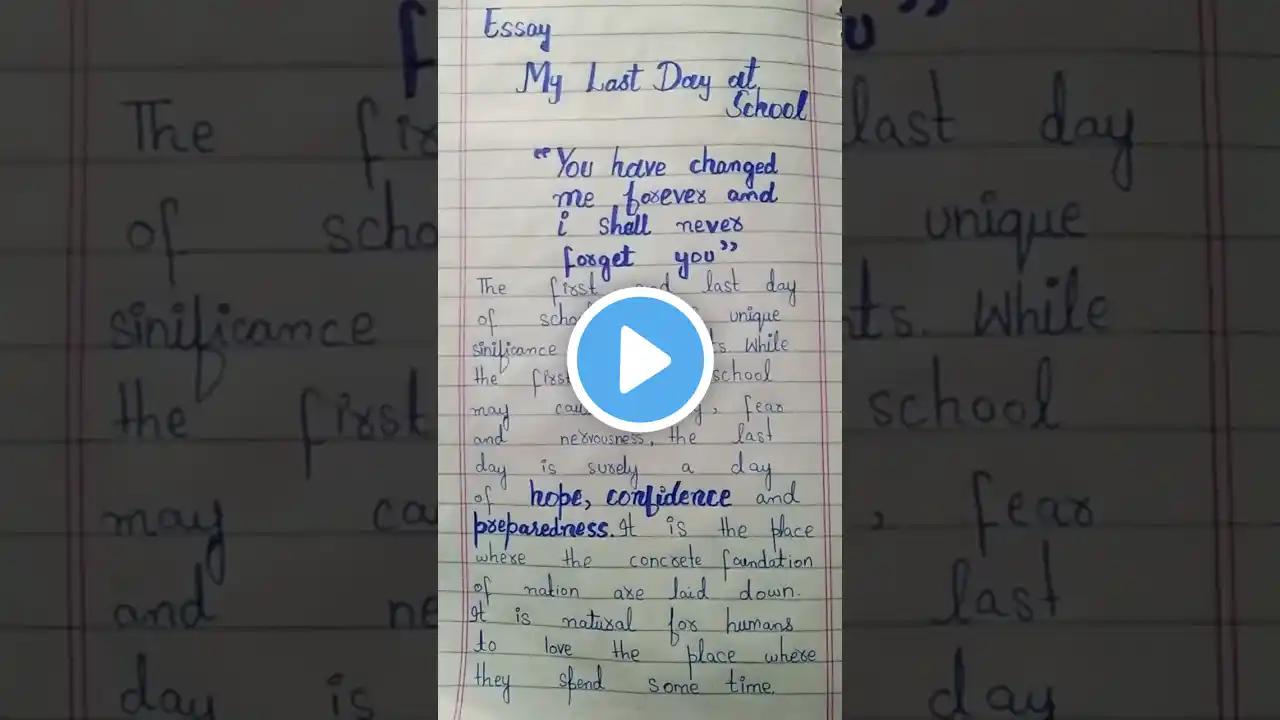 Essay
My Last Day at
School
"You have changed
me forever and
i shall never
forget you"
The first and last day
of unique
sinificance While
the first school
may fear
and nervousness, the last
day is surely a day
of hope, confidence and
preparedness. It is the place
where the concrete foundation
of nation are laid down.
It is natural for humans
to love the place where
they spend some time.